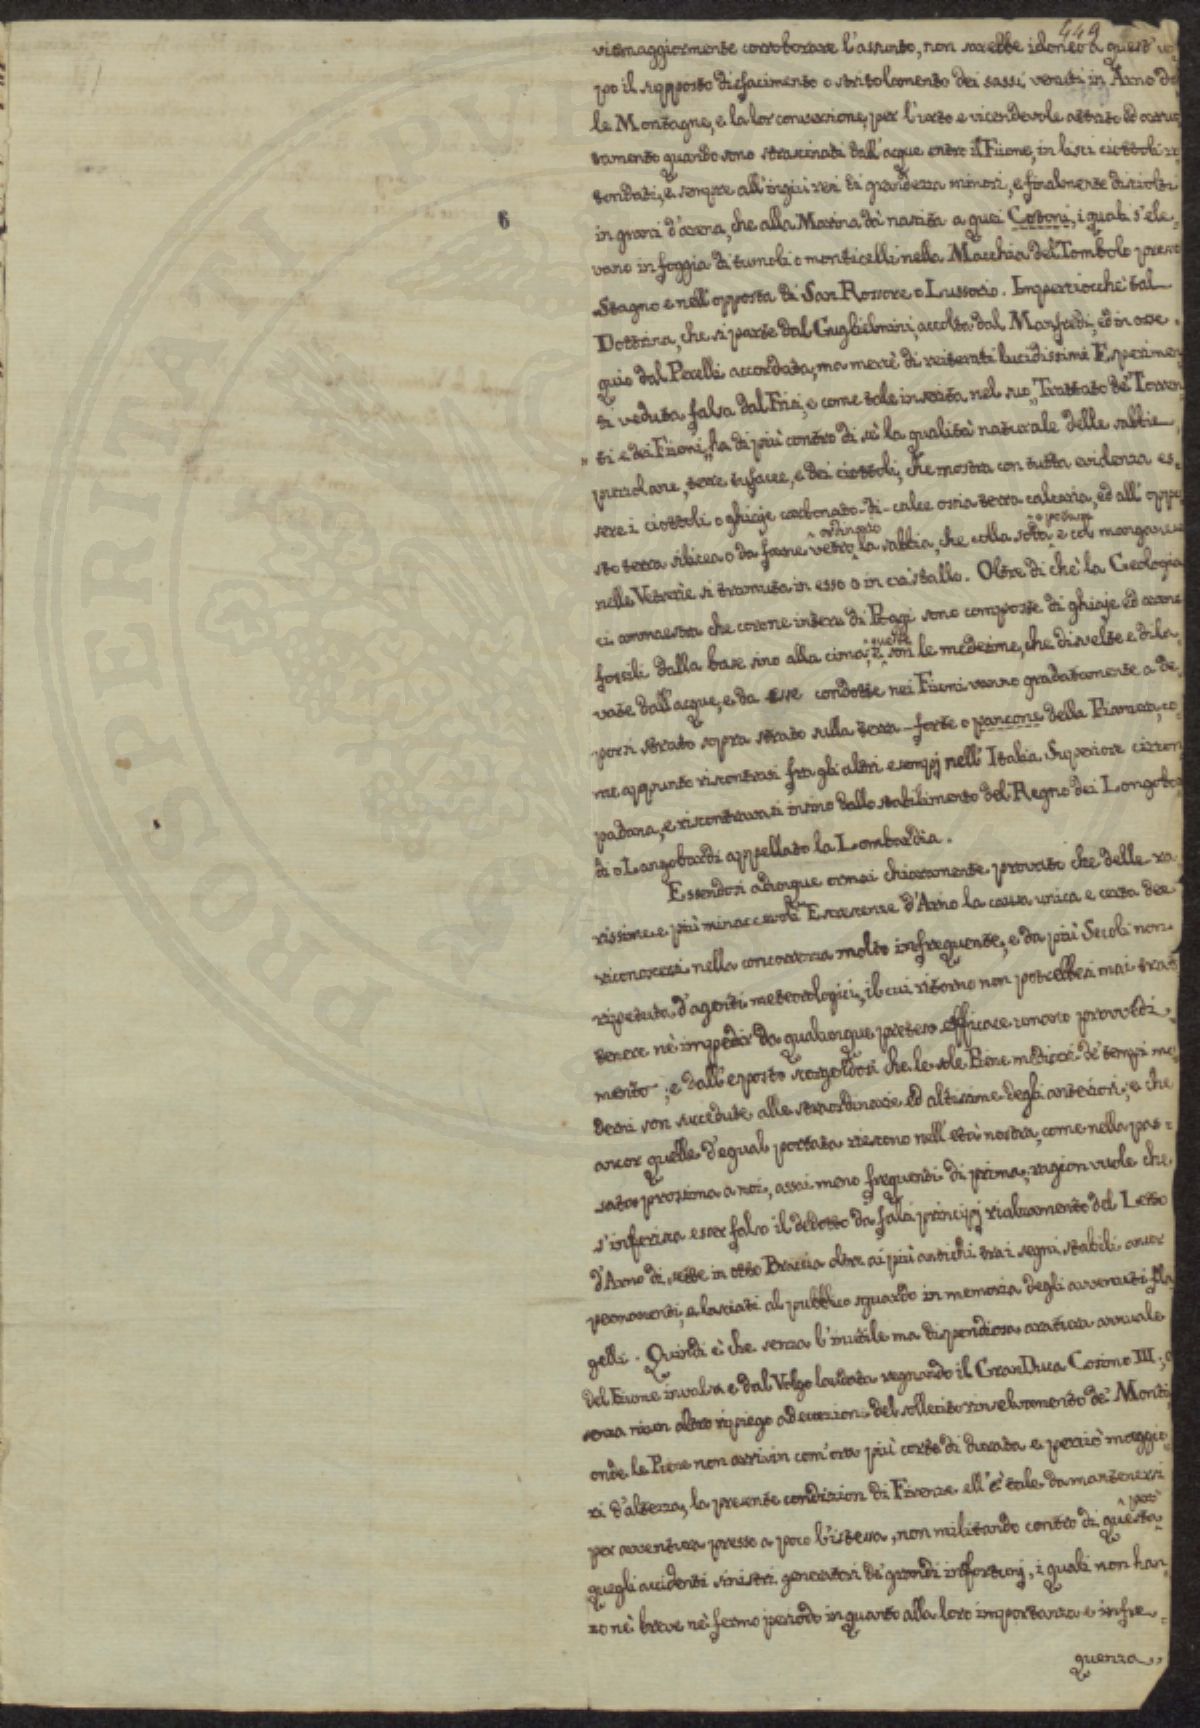 449
viemaggiormente corroborare l'assunto, non sarebbe idoneo a quest' uo-
po il supposto disfacimento o stritolamento dei sassi venuti in Arno da
le Montagne, e la lor conversione, per l'urto e vicendevole attrito ed arruo-
tamento quando sono strascinati dall'acque entro il Fiume, in lisci ciottoli ri-
tondati, e sempre all'ingiù resi di grandezza minori, e finalmente disciolti
in grani d'arena, che alla Marina dà nascita a quei Cotoni, i quali s'ele-
vano in foggia di tumoli o monticelli nella Macchia del Tombolo presso
Stagno e nell'opposta di San Rossore o Lussorio. Imperciocchè tal
Dottrina, che si parte dal Guglielmini, accolta dal Manfredi, ed in osse-
quio dal Perelli accordata, ma mercè di reiterati lucidissimi Esperimen-
ti veduta falsa dal Frisi, e come tale inserita nel suo „Trattato de' Torren-
„ ti e dei Fiumi„, ha di più contro di sè la qualità naturale delle sabbie
pozzolane, terre tufacee, e dei ciottoli, che mostra con tutta evidenza es-
sere i ciottoli o ghiaje carbonato-di-calce ossia terra calcaria, ed all' oppo-
sto terra silicea o da farne vetro ordinario la sabbia, che colla soda o potassa e col manganese
nelle Vetrerie si tramuta in esso o in cristallo. Oltre di che la Geologia
ci ammaestra che corone intere di Poggi sono composte di ghiaje ed arene
fossili dalla base sino alla cima; e queste son le medesime, che disvelte e dila-
vate dall'acque, e da esse condotte nei Fiumi vanno gradatamente a de-
porsi strato sopra strato sulla terra-forte o pancone della Pianura, co-
me appunto riscontrasi fra gli altri esempj nell' Italia Superiore circum-
padana, e riscontravasi insino dallo stabilimento del Regno dei Longobar-
di o Langobardi appellato la Lombardia.
Essendosi adunque ormai chiaramente provato che delle ra-
rissime e più minaccevoli Escrescenze d'Arno la causa unica e certa dee
riconoscersi nella concorrenza molto infrequente, e da più Secoli non
ripetuta d'agenti meteorologici, il cui ritorno non potrebbesi mai trat-
tenere nè impedir da qualunque preteso efficace umano provvedi-
mento; e dall'esposto scorgendosi che le sole Piene mediocri de' tempi mo-
derni son succedute alle straordinarie ed altissime degli anteriori, e che
ancor quelle d'egual portata riescono nell'età nostra, come nella pas-
sata prossima a noi, assai meno frequenti di prima; ragion vuole che
s'inferisca esser falso il dedotto da falsi principj rialzamento del Letto
d'Arno di sette in otto Braccia oltre ai più antichi trai segni stabili ancor
permanenti, e lasciati al pubblico sguardo in memoria degli avvenuti fla-
gelli. Quindi è che senza l'inutile ma dispendiosa aratura annuale
del Fiume invalsa e dal Volgo laudata regnando il Gran Duca Cosimo III, o
senza niun altro ripiego ad eccezione del sollecito rinselvamento de' Monti,
onde le Piene non arrivin com'ora più corte di durata e perciò maggio-
ri d'altezza, la presente condizion di Firenze ell'è tale da mantenersi
per avventura presso a poco l'istessa, non militando contro di questa però
quegli accidenti sinistri generatori de' grandi infortunj, i quali non han-
no nè breve nè fermo periodo in quanto alla loro importanza e infre-
quenza.,
6